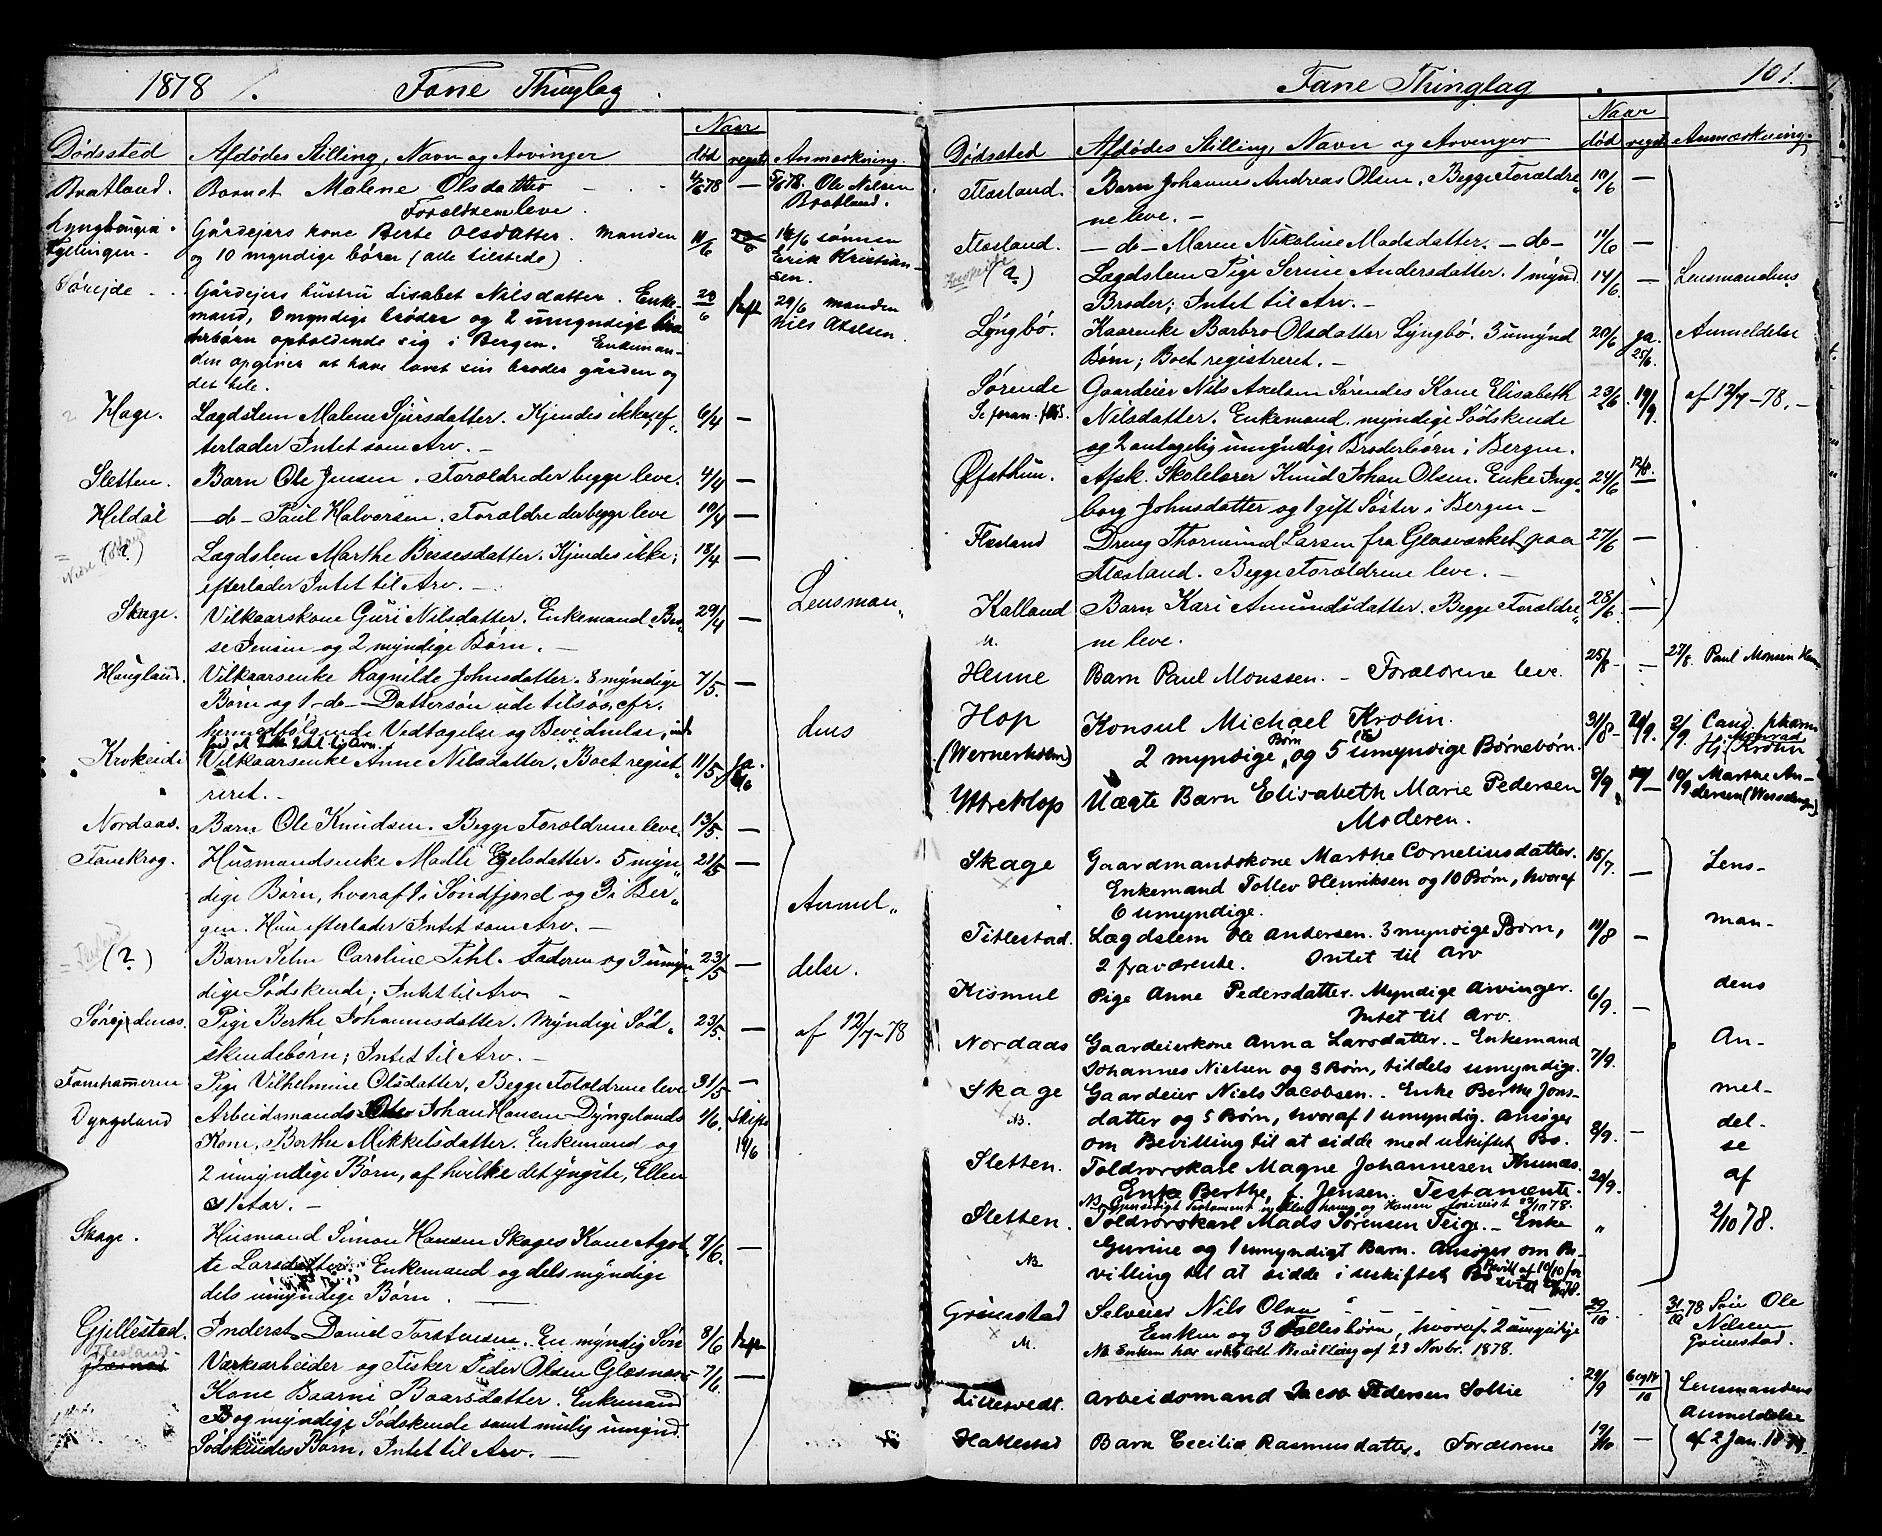 1878
Fane Thinglag
Naar
Dødssted Afdødes Stilling, Navn og Arvinger død registr Anmærkning.
Bratland. Barnet Malene Olsdatter 4/6 78 — 5/6 78. Ole Nilsen
Forældrene leve. Bratland.
Gårdejers kone Berte Olsdatter. Manden 11/6 14/6 sønnen
Fyllingen. og 10 myndige børn (alle tilstede) Erik Kristian-
sen.
Sørejde Gårdejers hustru Lisabet Nilsdatter. Enke- 23/6 29/6 manden
mand, myndige brødre og 2 umyndige bro- Nils Axelsen.
derbørn opholdende sig i Bergen. Enkeman-
den opgiver at have lovet sin broder gården og
det hele.
Hage. Lægdslem Malene Sjursdatter. Kjendes ikke, ef- 6/4 —
terlader Intet som Arv. —
Sletten. Barn Ole Jensen. Forældre der begge leve. 4/4 —
Hildal — do — Paul Halvorsen. Forældre der begge leve 10/4 —
(?) Lægdslem Marthe Bessesdatter. Kjendes ikke; 18/4 —
efterlader Intet til Arv. —
Skage. Vilkaarskone Guri Nilsdatter. Enkemand Bes- 29/4 — Lensman-
se Jensen og 2 myndige Børn. —
Haugland. Vilkaarsenke Ragnilde Johnsdatter. 8 myndige 7/5. —
Børn og 1 — do — Dattersøn ude tilsøs, cfr.
hermedfølgende Vedtagelse og Bevidnelse, dens
Krokeide Vilkaarsenke Anne Nilsdatter. Boet regist- 11/5. ja.
reret. —
Nordaas. Barn Ole Knudsen. Begge Forældrene leve. 13/5. —
Fanekrog. Husmandsenke Madli Egelsdatter. 5 myn- 21/5 —
dige Børn, hvoraf 1 i Søndfjord og 3 i Ber- Anmel-
gen. Hun efterlader Intet som Arv. —
(?) Barn Caroline Pihl. Faderen og 3 umyn- 23/5 — delse.
dige Sødskende; Intet til Arv —
Pige Berthe Johannesdatter. Myndige Sød- 23/5. — af 12/7-78
skendebørn; Intet til Arv. —
Fanehammeren Pige Vilhelmine Olsdatter, Begge Forældrene leve 31/5 —
Dyngeland Arbeidsmand Johan Hansen Dyngelands 1/6. Skifte
Kone, Berthe Mikkelsdatter. Enkemand og 19/6
2 umyndige Børn, af hvilke det yngste, Ellen
1 Aar. —
Skage. Husmand Simon Hansen Skages Kone Agat- 7/6. —
te Larsdatter. Enkemand og dels myndige
dels umyndige Børn. —
Gjellestad. Inderst David Torstensen. En myndig Søn 8/6
Flesland Værksarbeider og Fisker Peder Olsen Glæsnæs 7/6. —
Kone Baarni Baarsdatter. Enkemand
og myndige Sødskende samt mulig umynd.
Sødskendes Børn. Intet til Arv. —
Fane Thinglag 101.
Naar
Dødssted Afdødes Stilling, Navn og Arvinger død regist Anmærkning.
Flæsland. Barn Johannes Andreas Olsen. Begge Forældre- 10/6 —
ne leve. —
Flæsland. — do — Maren Nikoline Madsdatter. — do — 11/6 —
(?) Lægdslem Pige Serine Andersdatter. 1 mynd 14/6. — Lensmandens
Broder; Intet til Arv. —
Lyngbø. Kaarenke Barbro Olsdatter Lyngbø. 3 umynd 20/6 ja. Anmeldelse
Børn; Boet registreret. — 25/6.
Sørende Gaardeier Nils Axelsen Sørendes Kone Elisabeth 23/6 19/9 af 12/7-78. —
Nilsdatter. Enkemand, myndige Sødskende
og 2 antagelig umyndige Broderbørn i Bergen.
Øfsthun. Afsk. Skolelærer Knud Johan Olsen. Enke Inge- 24/6
borg Johnsdatter og 1 gift Søster i Bergen —
Flæsland Dreng Thormund Larsen fra Glasværket paa 27/6 —
Flæsland. Begge Forældrene leve. —
Kalland Barn Kari Amundsdatter. Begge Forældre- 28/6. —
ne leve.
Henne Barn Paul Monssen. — Forældrene leve. 25/8 — 27/8. Paul Monsen
Hop Konsul Michael Krohn. 31/8 — 2/9. Cand. pharm
(Wernersholm) 2 myndige Børn og 5 umyndige Børnebørn. Hj. Monrad Krohn
Ytre Hop Uægte Barn Elisabeth Marie Pedersen 8/9 — 10/9 Marthe An-
Moderen. dersen
Skage Gaardmandskone Marthe Cornelius datter. 15/7. — Lens-
Enkemand Tollev Henriksen og 10 Børn, hvoraf
6 umyndige. man-
Titlestad. Lægdslem Ole Andersen. 3 myndige Børn, —
2 fraværende. Intet til Arv
Kismul Pige Anne Pedersdatter. Myndige Arvinger. 6/9. — dens
Intet til Arv.
Nordaas Gaardeierkone Anna Larsdatter. — Enkemand 7/9. An-
Johannes Nielsen og 8 Børn, tildels umyndige.
Skage Gaardeier Niels Jacobsen. Enke Berthe Jons- mel-
datter og 5 Børn, hvoraf 1 umyndig. Ansøger 8/9. — del-
om Bevilling til at sidde med uskiftet Bo. se
Sletten. Toldrorskarl Magne Johannesen Thunæs. 20/9. af
Enke Berthe, f. Jensen. Testamente.
Sletten. Toldrorskarl Mads Sørensen Teige. — Enke " 2/10 78.
Gurine og 1 umyndigt Barn. Ansøger om Be-
villing til at sidde i uskiftet Bo
Grimestad Selveier Nils Olsen 29/10 31/10 78 Søn Ole
Enken og 3 Fællesbørn, hvoraf 2 umyndige Nielsen
NB Enken har erholdt Bevilling af 23 Novbr. 1878. Grimestad.
Arbeidsmand Jacob Pedersen Sollie 29/9 Lensmandens
Anmeldelse
Hatlestad Barn Cecilie Rasmusdatter. Forældrene — af 2 Jan. 1879.